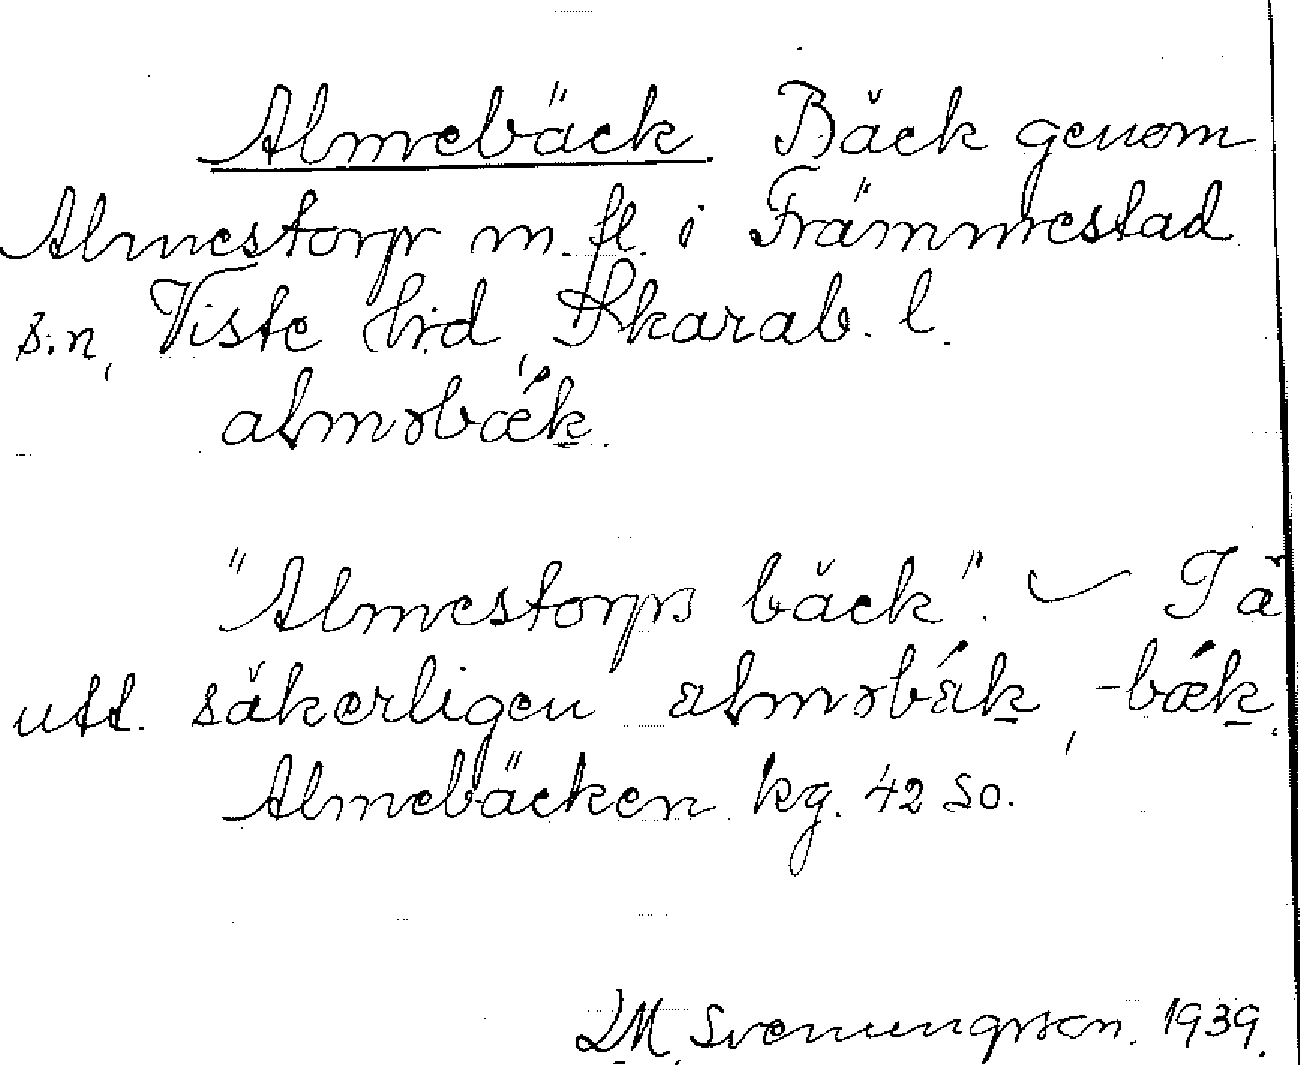 Almebäck. Bäck genom
Almestorp m. fl. i Främmestad
s:n, Viste hd, Skarab. l.
alməbæk.
"Almestorps bäck". Tä
utt. säkerligen alməbäk, -bæk.
Almebäcken kg. 42 so.
D.M. Svenungsson. 1939.